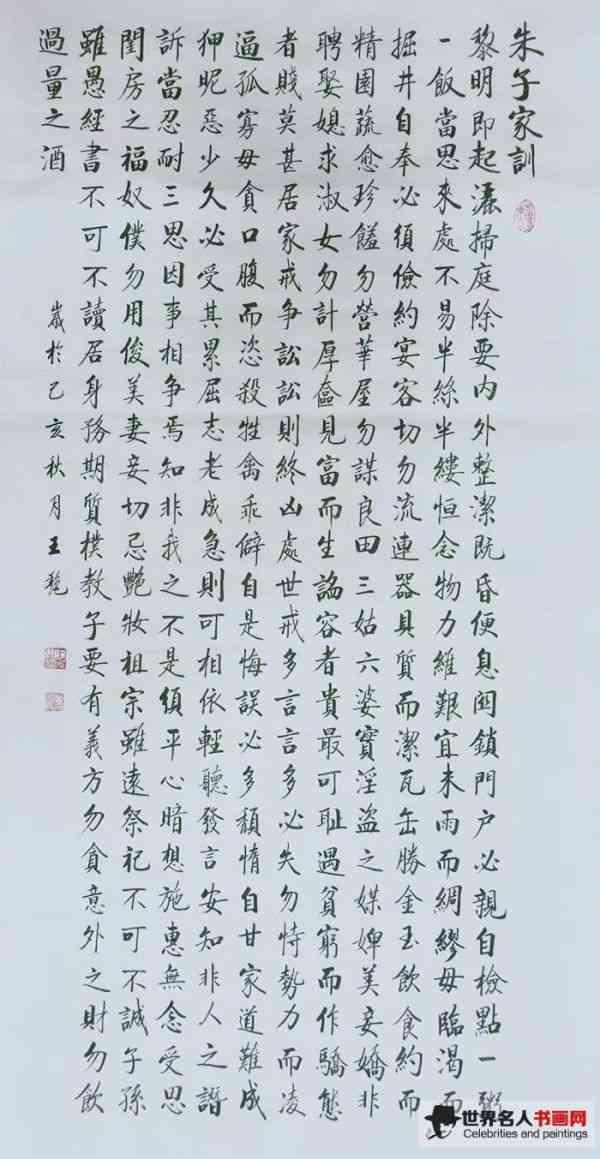 朱子家訓
黎明即起灑掃庭除要内外整潔既昏便息関鎖門户必親自檢點一粥
一飯當思來處不易半絲半縷恒念物力維艱宜未雨而綢繆毋臨渴而
掘井自奉必須儉約宴客切勿流連器具質而潔瓦缶勝金玉飲食約而
精園蔬愈珍饈勿營華屋勿謀良田三姑六婆實淫盗之媒婢美妾嬌非
聘娶媳求淑女勿計厚奩見富而生諂容者貴最可耻遇貧窮而作驕態
者賤莫甚居家戒争訟訟則終凶處世戒多言言多必失勿恃勢力而凌
逼孤寡毋貪口腹而恣殺牲禽乖僻自是悔誤必多頽惰自甘家道難成
狎昵惡少久必受其累屈志老成急則可相依輕聽發言安知非人之譖
訴當忍耐三思因事相争焉知非我之不是須平心暗想施惠無念受恩
閨房之福奴僕勿用俊美妻妾切忌艷妝祖宗雖遠祭祀不可不誠子孫
雖愚經書不可不讀居身務期質樸教子要有義方勿貪意外之財勿飲
過量之酒
歲於己亥秋月王
世界名人书画网
Celebrities and paintings